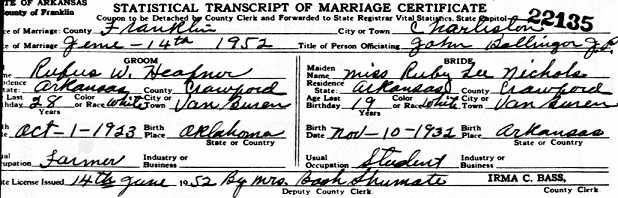 TE OF ARKANSAS STATISTICAL TRANSCRIPT OF MARRIAGE CERTIFICATE
County of Franklin Coupon to be Detached by County Clerk and Forwarded to State Registrar Vital Statistics, State Capitol. 22135
ce of Marriage: County Franklin City or Town Charleston
e of Marriage June - 14th 1952 Title of Person Officiating John Bollinger J.P.
GROOM BRIDE
me Rufus W. Heafner Maiden Name miss Ruby Lee Nichols
idence State: Arkansas County Crawford Residence State: Arkansas County Crawford
Age Last Birthday 28 Years Color or Race White City or Town Van Buren Age Last Birthday 19 Years Color or Race White City or Town Van Buren
th Oct-1-1923 Birth Place Oklahoma State or Country Birth Date Nov-10-1932 Birth Place Arkansas State or Country
ual cupation Farmer Industry or Business Usual Occupation Student Industry or Business
te License Issued 14th June 1952 By Mrs. Bash Shumate Deputy County Clerk. IRMA C. BASS, County Clerk.